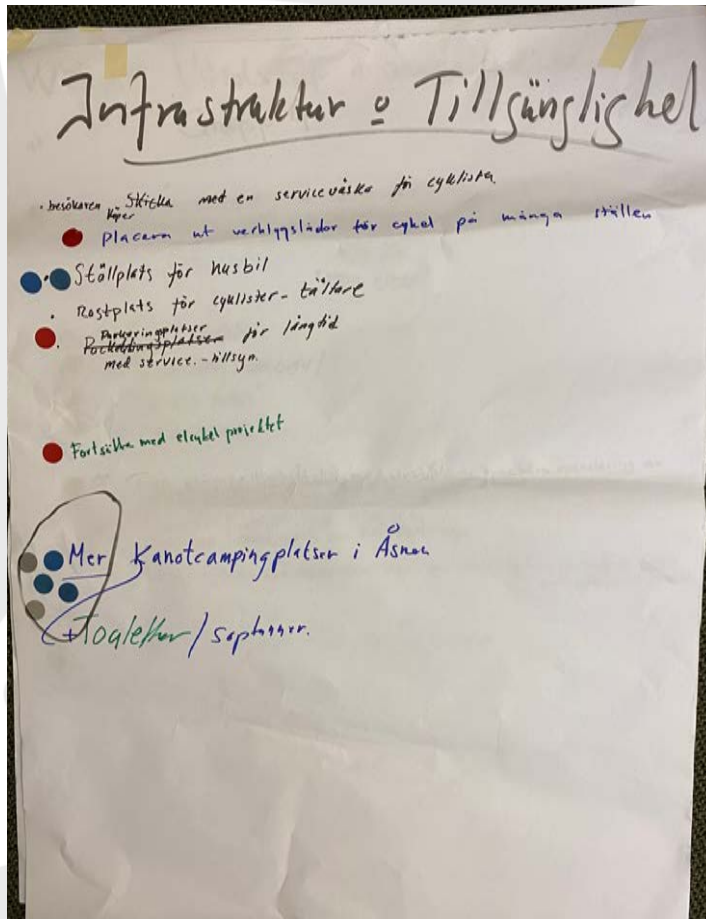 Infrastruktur o Tillgänglighet
· besökaren köper Skicka med en serviceväska för cyklister
Placera ut verktygslådor för cykel på många ställen
· Ställplats för husbil
· Rastplats för cyklister - tältare
· Parkeringplatser för långtid
med service. - tillsyn.
Fortsätta med elcykel projektet
Mer Kanotcampingplatser i Åsnen
+ Toaletter / soptunnor.